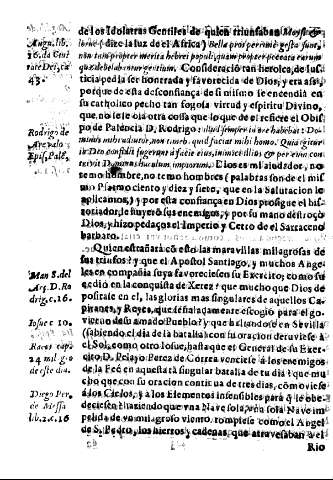 de los Idolatras Gentiles de quien triunfaban Moysé è
Iosue (dize la luz de el Africa) Bella pro
non tam propter merita hebræi populi, quam propter peccata earum
gentium. Consideració tan heroica, de Jus-
ticia pedia ser honrrada y favorecida de Dios, y era assi,
porque de esta desconfiança de si mismo se encendia en
su catholico pecho tan fogosa virtud y espiritu Divino,
que, no se le oìa otra cosa que lo que de el refiere el Obis-
po de Palencia D. Rodrigo: illud semper in ore habebat: Do-
minus mihi adiutor, non timeb. quid faciat mihi homo.
Dios es mi aiudador, no
temo hombre, no temo hombres (palabras son de el mis-
mo Psalmo ciento y diez y siete, que en la Salutacion le
aplicamos,) y por esta confiança en Dios prosigue el his-
toriador, le huyeró sus enemigos, y por su mano destroçò
Dios, y hizo pedaços el Imperio y Cetro de el Sarraceno
barbaro.
Quien estrañará cō esto las maravillas milagrosas de
sus triunfos? y que el Apostol Santiago, y muchos Ange
les en compañia suya favoreciesen su Exercito; como su
cedió en la conquista de Xerez? que mucho que Dios de
positase en el, las glorias mas singulares de aquellos Ca-
pitanes, y Reyes, que señaladamente escogió para el go-
vierno de su amado Pueblo? y que hallandose en Sevilla
(sabiendo el dia de la batalla) con su oracion detuviese à
el Sol, como otro Iosue, hasta que el General de su Exer-
cito D. Pelayo Perez de Correa venciese à los enemigos
de la Feé en aquesta tà singular batalla de tu dia? que mu
cho que con su oracion continua de tres dias, cōmoviese
à los Cielos, y à los Elementos insensibles para q̃ le obe-
deciesen? haziendo que vna Nave sola, vna sola Nave im
pelida de vn milagroso viento, rompiese como el Angel
de S. Pedro, los hierros, y cadenas, que atravesaban el
Rio
Augu. lib.
16. da Civi
tate Dei, ca
43.
Rodrigo de
Arevalo
Epis. Palē.
Man S. del
Arç. D. Ro
drig. c. 16.
Iosue c. 10.
24 mil gio
de este dia.
Diego Per.
de Messa
lib. 2. c. 16